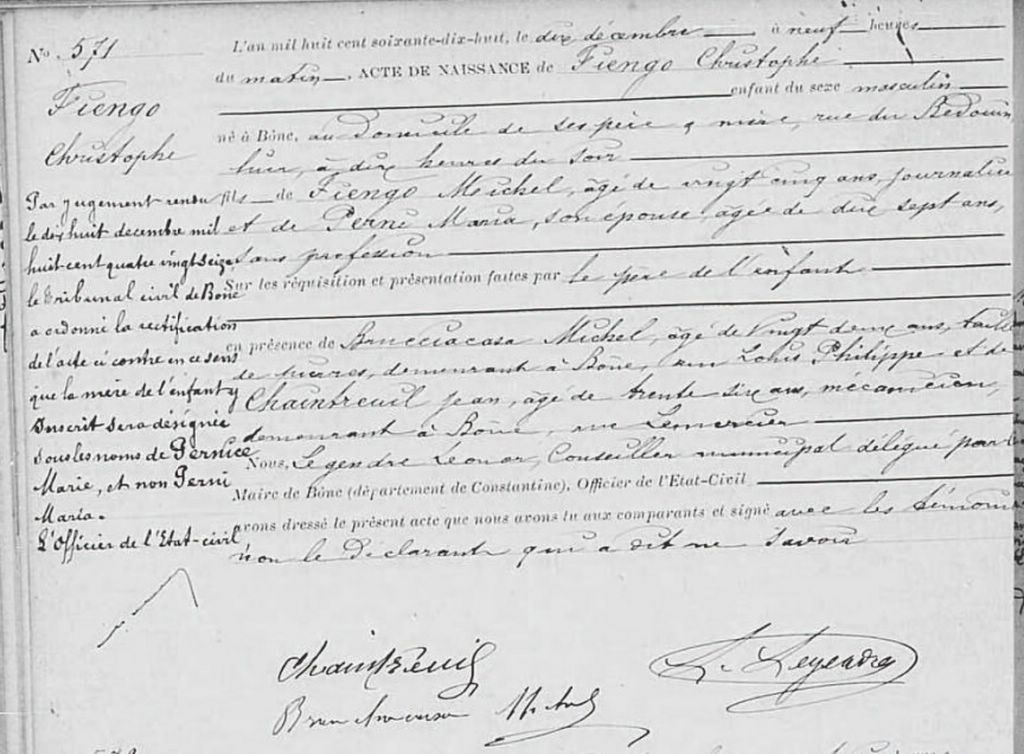 No. 571
Fiengo
Christophe
Par jugement rendu
le dix huit decembre mil
huit-cent quatre vingt seize
le Tribunal civil de Bône
a ordonné la rectification
de l'acte ci contre en ce sens
que la mère de l'enfant y
inscrit sera désignée
sous les noms de Pernice
Marie, et non Perni
Maria.
L'Officier de l'Etat-civil
L'an mil huit cent soixante-dix-huit, le dix décembre à neuf heures
du matin, ACTE DE NAISSANCE de Fiengo Christophe
enfant du sexe masculin
né à Bône, au domicile de ses père & mère, rue du Bedouin
hier, à dix heures du soir
fils de Fiengo Michel, âgé de vingt cinq ans, journalier
et de Perni Maria, son épouse, âgée de dix sept ans,
sans profession
Sur les réquisition et présentation faites par le père de l'enfant
en présence de Brucciacasa Michel, âgé de vingt deux ans, taill
de pierres, demeurant à Bône, rue Louis Philippe et de
Chaintreuil jean, âgé de trente six ans, mécanicien,
demeurant à Bône, rue Lemercier
Nous, Legendre Leonor, Conseiller municipal délégué par le
Maire de Bône (département de Constantine), Officier de l'Etat-Civil
avons dressé le présent acte que nous avons lu aux comparants et signé avec les témoins
non le Déclarant qui a dit ne savoir
Chaintreuil
L. Legendre
Michel
572